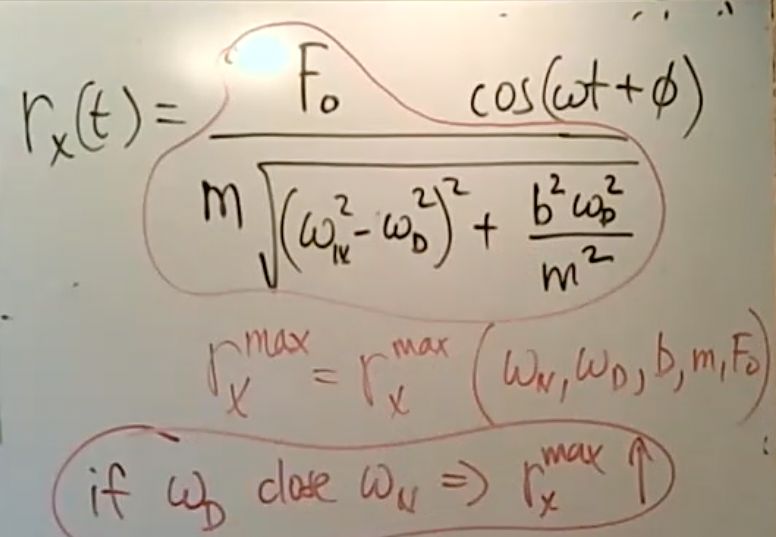 r_x(t) = F_0 cos(ωt + φ) / (m √((ω_N^2 - ω_D^2)^2 + b^2 ω_D^2 / m^2))
r_x^max = r_x^max (ω_N, ω_D, b, m, F_0)
if ω_D close ω_N ⇒ r_x^max ↑